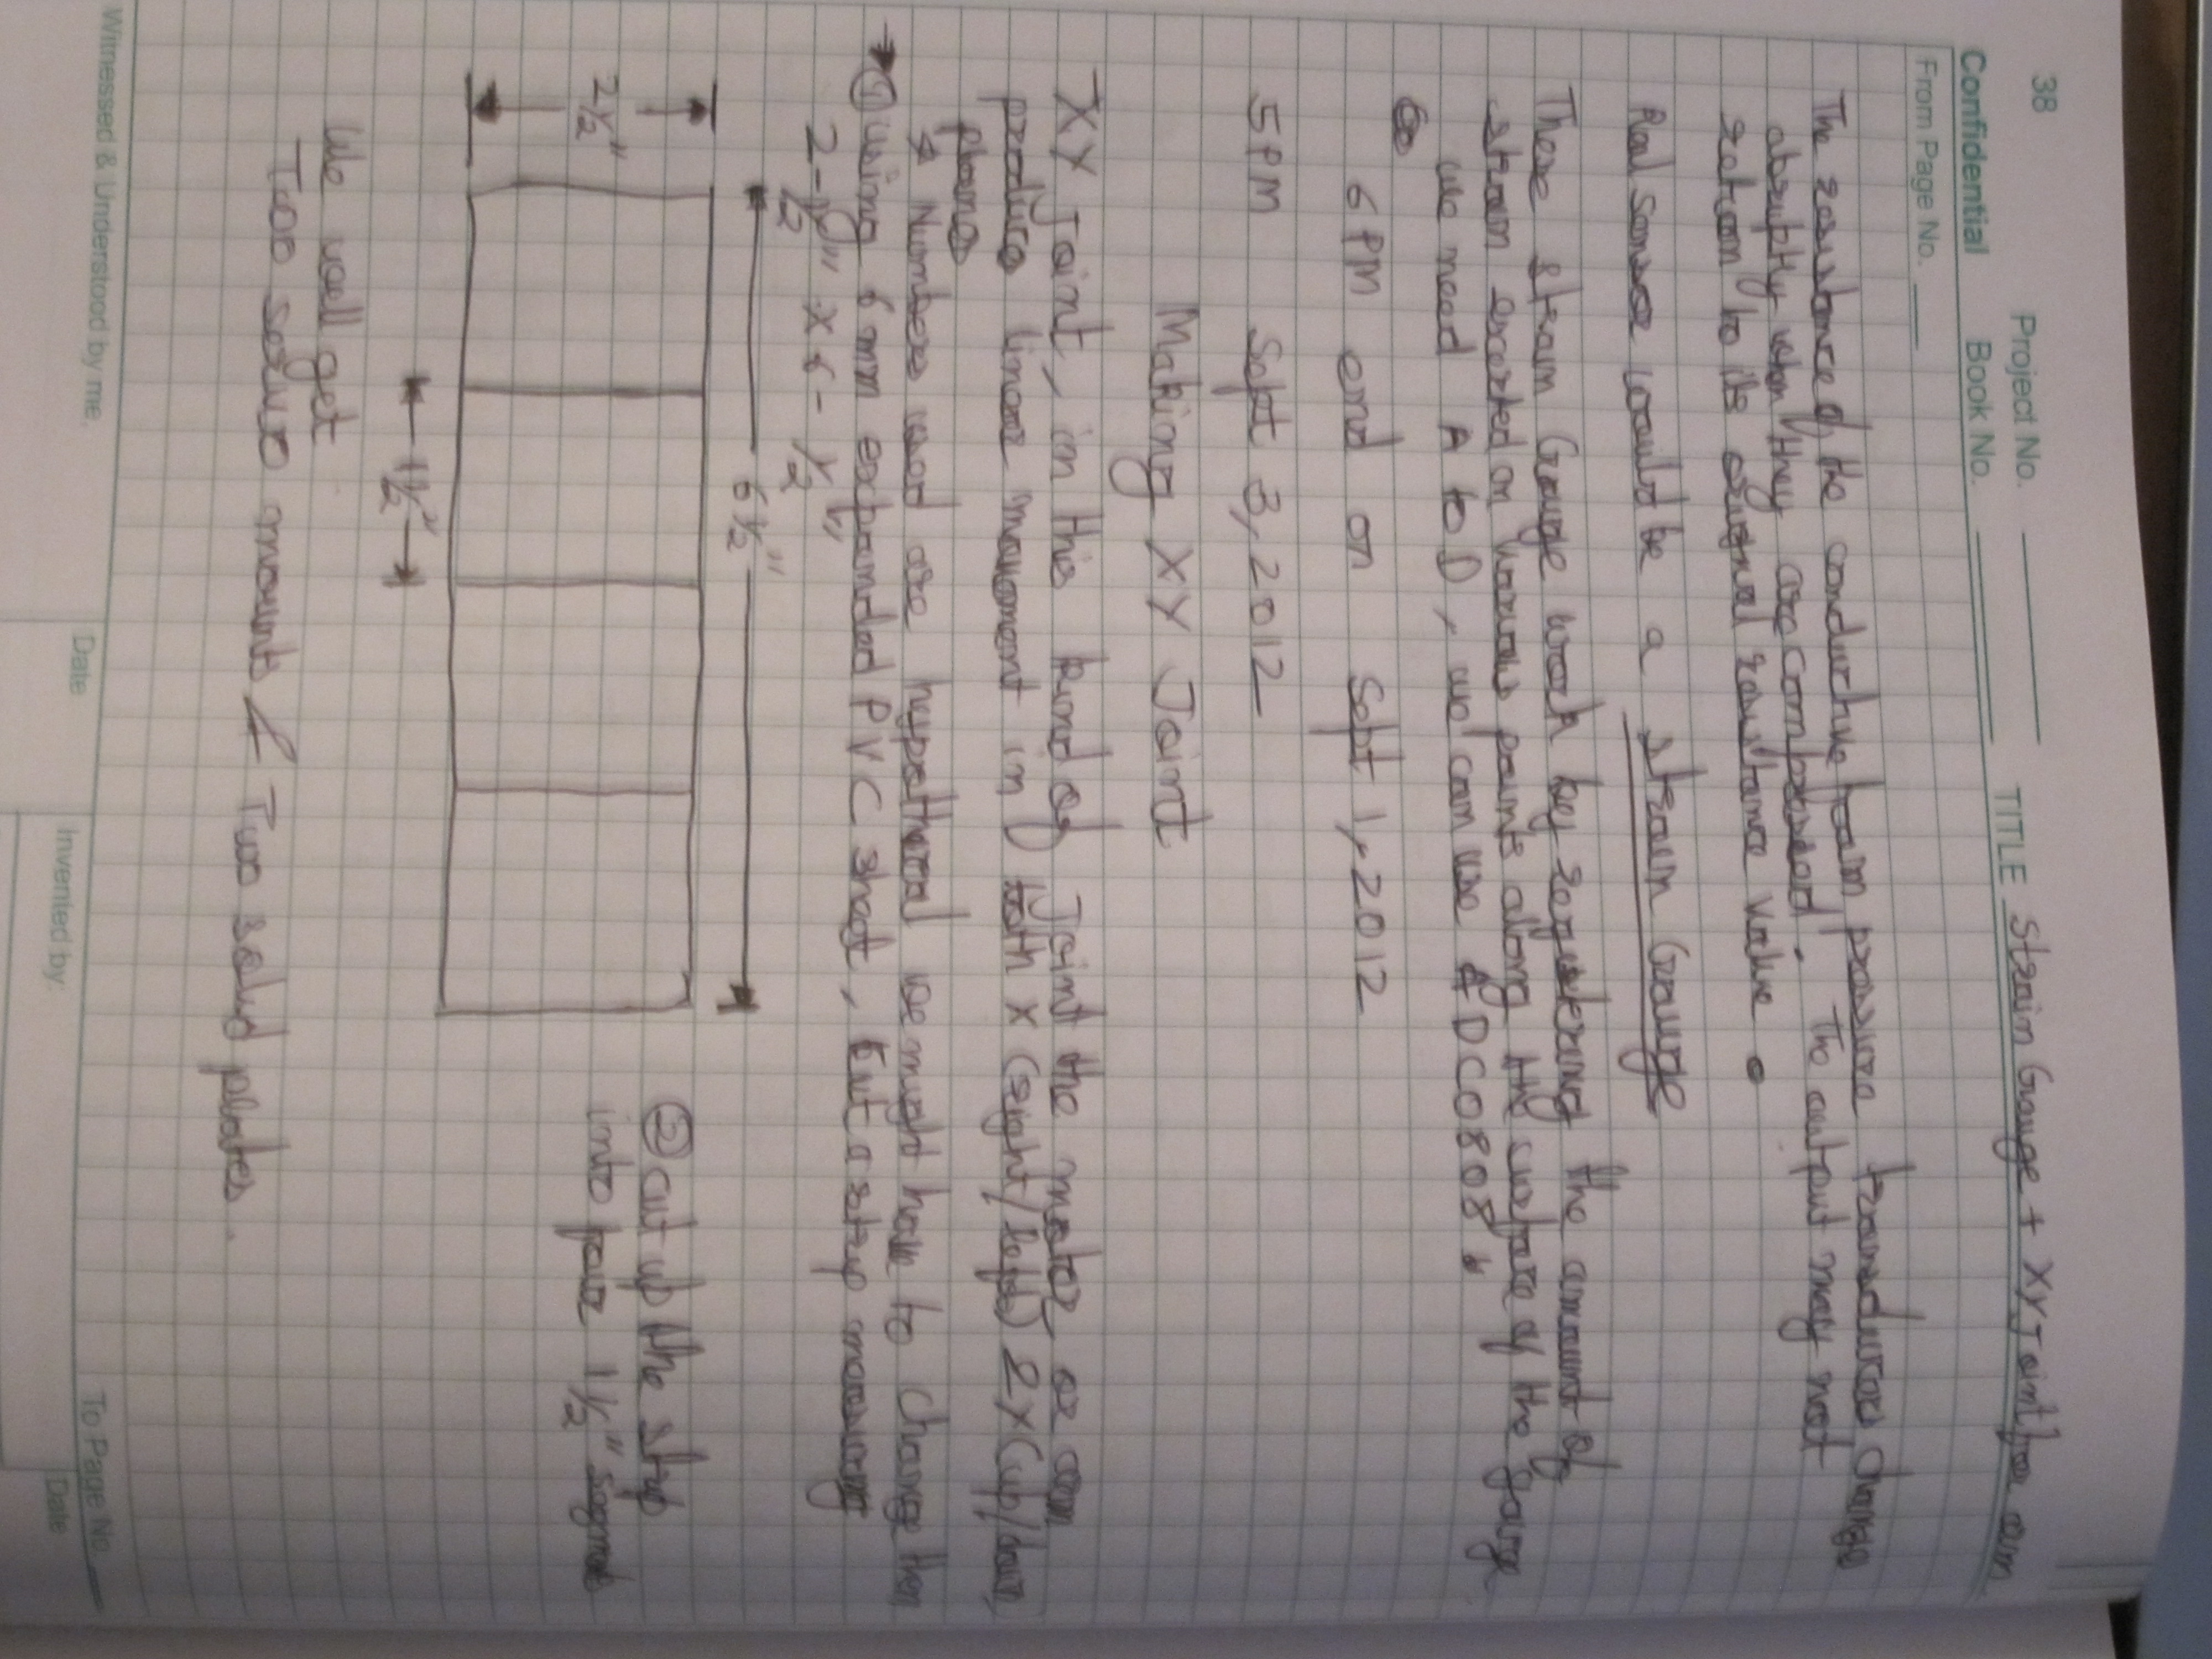 38
Project No.
TITLE Strain Gauge + XY Joint for arm
Confidential
Book No.
From Page No.
The resistance of the conductive foam pressure transducers change
abruptly when they are compressed. The output may not
return to its original resistance value.
Real sensor would be a strain Gauge
These strain Gauge work by registering the amount of
strain exerted on various points along the surface of the gauge
We need A to D, we can use ADC0808.
6 PM end on Sept 1, 2012
5 PM Sept 3, 2012
Making XY Joint
XY Joint, in this kind of Joint the motor or can
produce linear movement in both X (Right/Left) 2 Y (up/down)
planes
Numbers used are hypothetical we might have to change then
① using 6 mm expanded PVC sheet, cut a strip measuring
2-1/2" x 6-1/2"
6 1/2"
2 1/2"
② cut up the strip
into four 1 1/2" segment
1 1/2"
We will get
Two servo mounts & Two servo plates.
To Page No.
Witnessed & Understood by me,
Date
Invented by:
Date